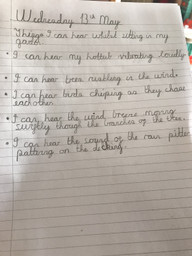 Wednesday 13th May
Things I can hear whilst sitting in my
garden.
• I can hear my hottub vibrating loudly.
• I can hear trees rustling in the wind.
• I can hear birds chirping as they chase
eachother.
• I can hear the wind breeze moving
swiftly though the branches of the tree.
• I can hear the sound of the rain pitter
pattering on the decking.